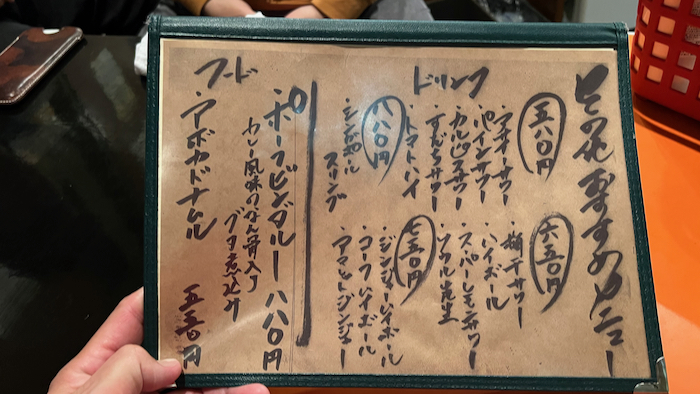 その他おすすめメニュー
ドリンク
五八〇円
・アオオーサワー
・パインサワー
・カルピスサワー
・すだちサワー
・トマトハイ
八八〇円
・シンガポール
スリング
六五〇円
・梅干サワー
・ハイボール
・スパーレモンサワー
・ソウル先生
七五〇円
・ジンジャーハイボール
・コークハイボール
・アマレットジンジャー
フード
・ポークビンダルー 八八〇円
カレー風味のなん骨入り
ブタ煮込み
・アボカドナムル 五五〇円